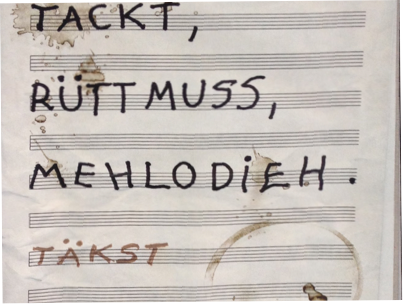 TACKT,
RÜTTMUSS,
MEHLODiEH.
TÄKST